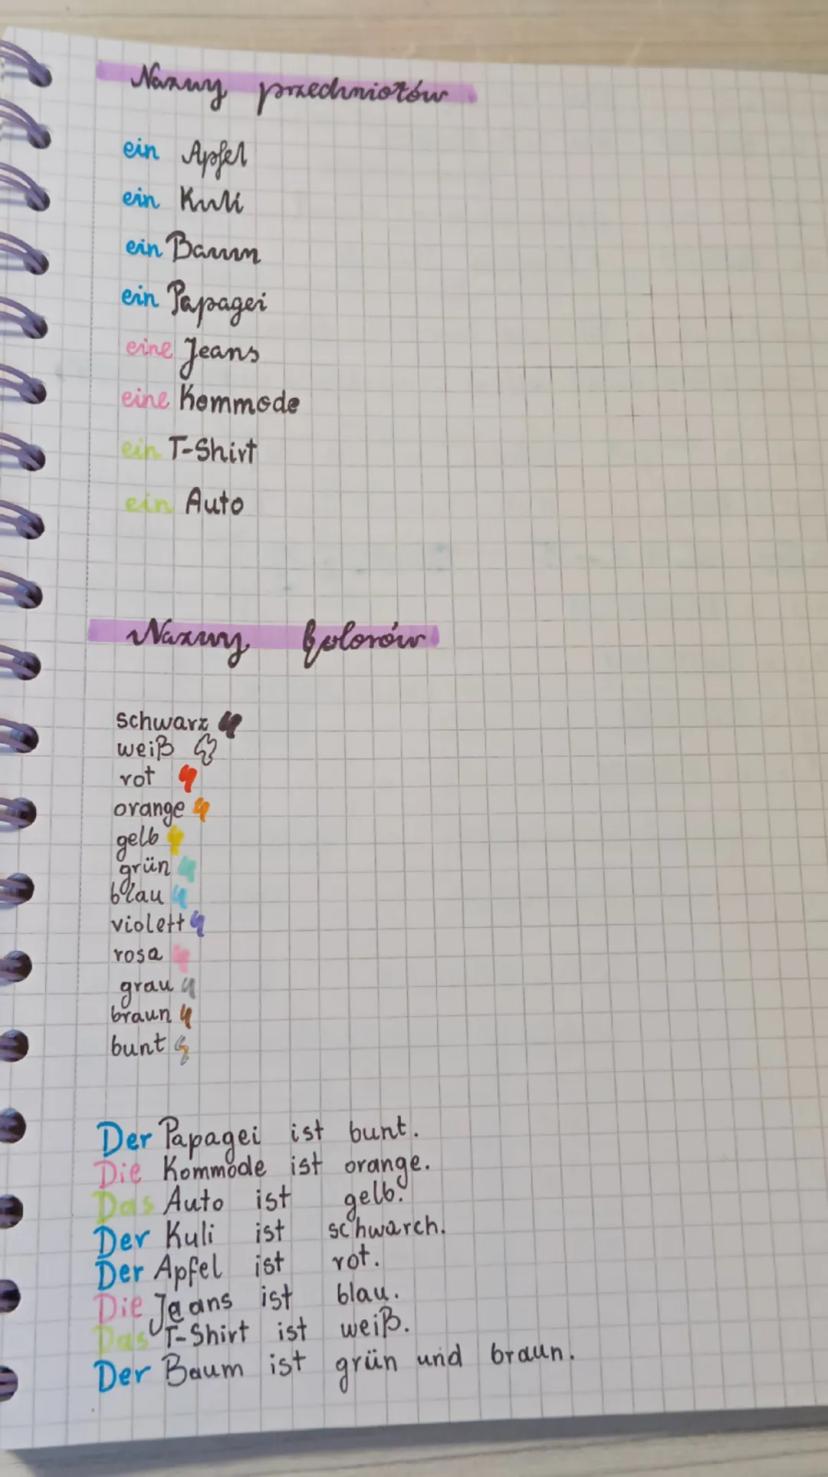 Nazwy przedmiotów
ein Apfel
ein Kuli
ein Baum
ein Papagei
eine Jeans
eine Kommode
ein T-Shirt
ein Auto
Nazwy kolorów
schwarz
weiß
rot
orange
gelb
grün
blau
violett
rosa
grau
braun
bunt
Der Papagei ist bunt.
Die Kommode ist orange.
Das Auto ist gelb.
Der Kuli ist schwarch.
Der Apfel ist rot.
Die Jeans ist blau.
Das T-Shirt ist weiß.
Der Baum ist grün und braun.